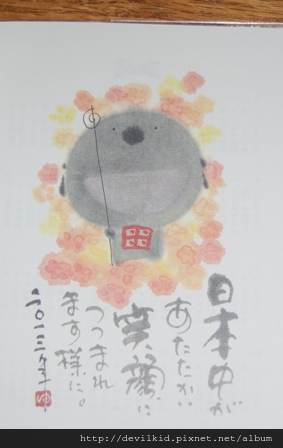 日本中が
あたたかい
笑顔に
つつまれ
ます様に。
二〇一二年
http://devilkid.pixnet.net/album